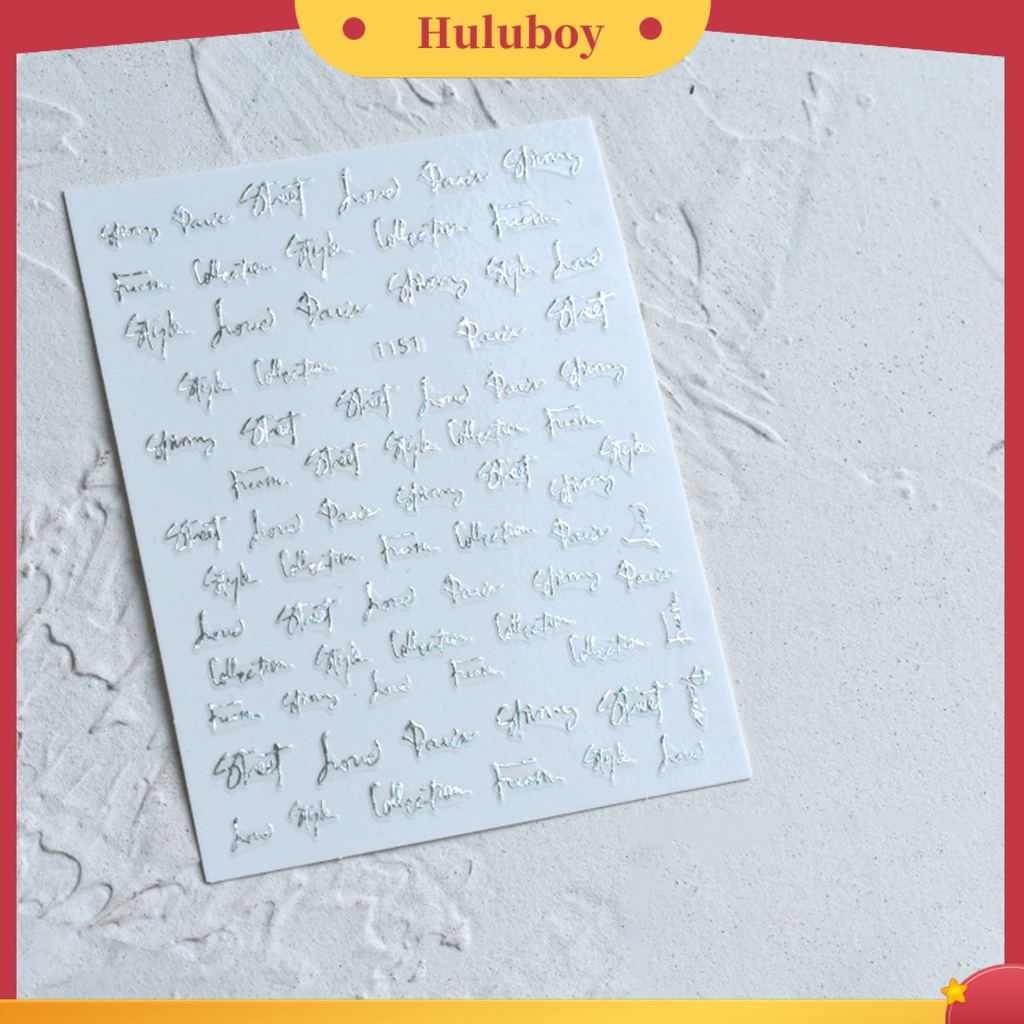 Huluboy
Street Love Paris Strong
Strong Paris
Style Collection From
From Collection
Strong Style Love
Style Love Paris
1151 Paris Street
Style Collection
Street Love Paris Strong
Strong Street
Street Style Collection From
From
Strong Street Style
Street Love Paris Strong
Style Collection From Collection Paris Love
Love Street Love Paris Strong Paris
Collection Style Collection Collection Collection From
From Strong Love From
Street Love Paris Strong Street Paris
Love Style Collection From Style Love